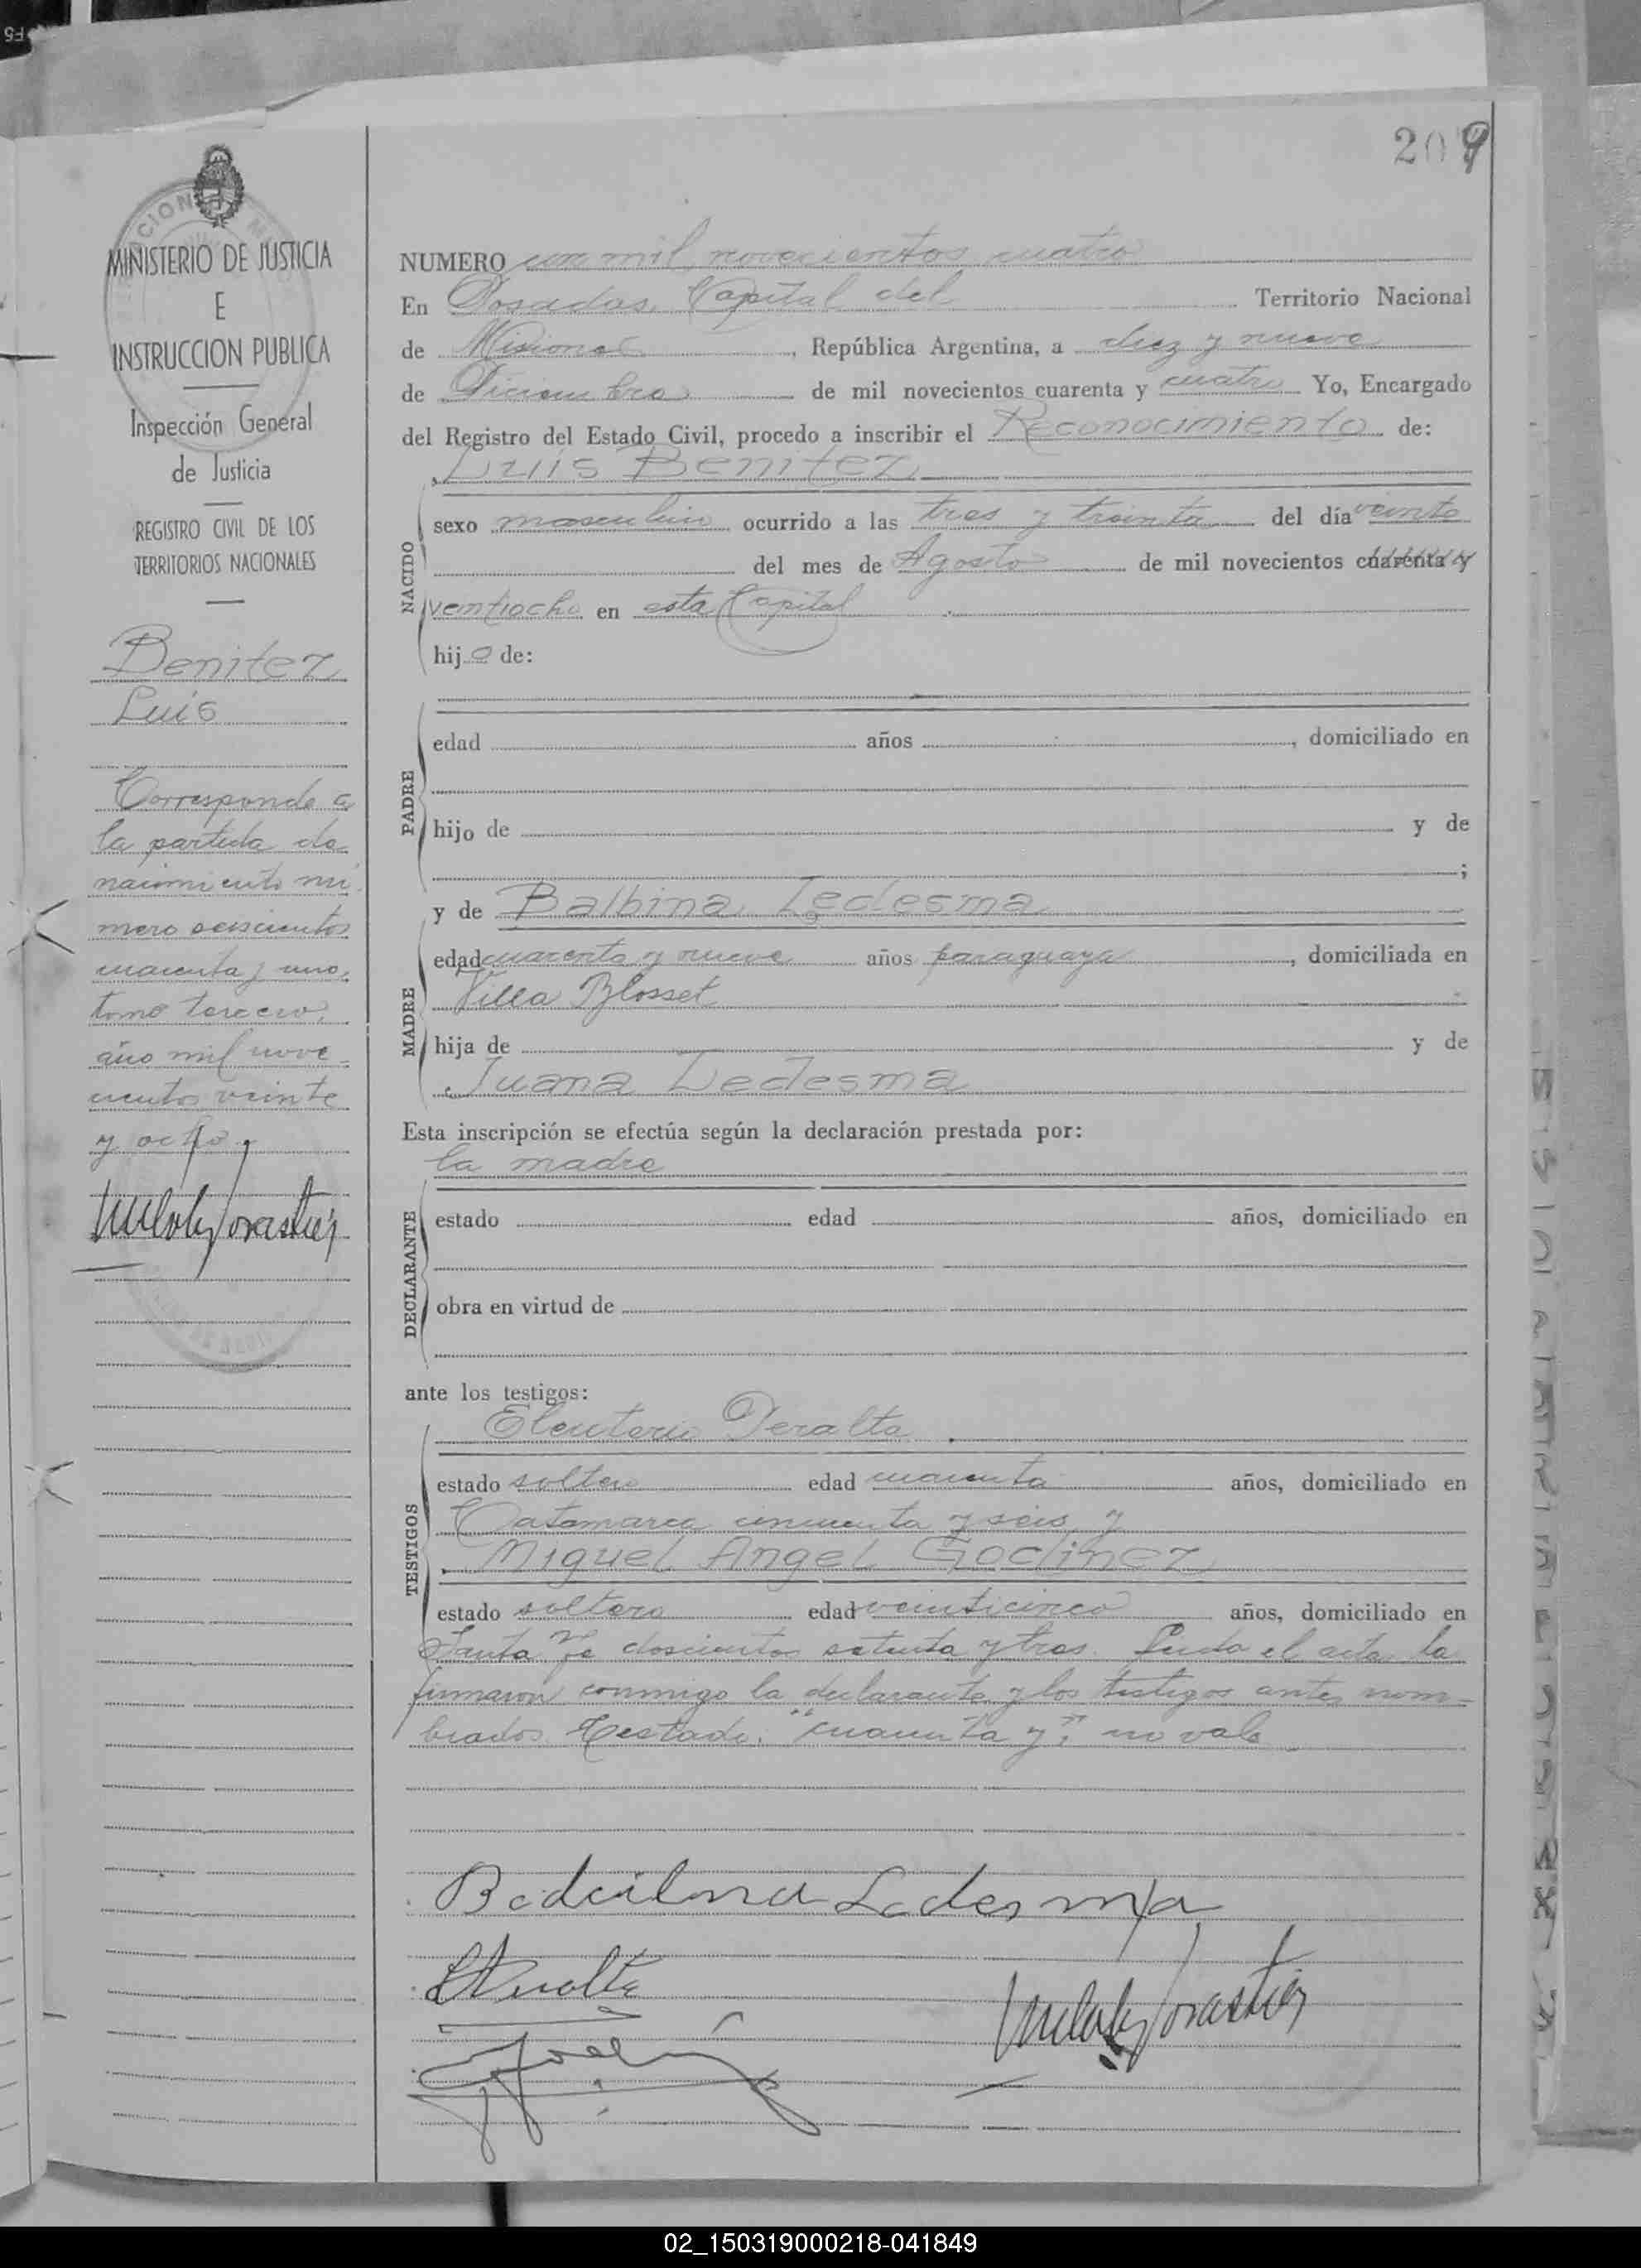 209
MINISTERIO DE JUSTICIA
E
INSTRUCCION PUBLICA
Inspección General
de Justicia
REGISTRO CIVIL DE LOS
TERRITORIOS NACIONALES
Benitez
Luis
Corresponde a
la partida de
nacimiento nú
mero seiscientos
cuarenta y uno,
tomo tercero,
año mil nove-
cientos veinte
y ocho.
NUMERO un mil novecientos cuatro
En Posadas, Capital del Territorio Nacional
de Misiones, República Argentina, a diez y nueve
de Diciembre de mil novecientos cuarenta y cuatro Yo, Encargado
del Registro del Estado Civil, procedo a inscribir el Reconocimiento de:
Luis Benitez
NACIDO
sexo masculino ocurrido a las tres y treinta del día veinte
del mes de Agosto de mil novecientos cuarenta y
ventiocho en esta Capital
hijo de:
PADRE
edad años , domiciliado en
hijo de y de
;
y de Balbina Ledesma
MADRE
edad cuarenta y nueve años paraguaya , domiciliada en
Villa Blosset
hija de y de
Juana Ledesma
Esta inscripción se efectúa según la declaración prestada por:
la madre
DECLARANTE
estado edad años, domiciliado en
obra en virtud de
ante los testigos:
Eleuterio Peralta
TESTIGOS
estado soltero edad cuarenta años, domiciliado en
Catamarca cincuenta y seis y
Miguel Angel Godinez
estado soltero edad veinticinco años, domiciliado en
Santa Fe doscientos setenta y tres. Leída el acta la
firmaron conmigo la declarante y los testigos antes nom-
brados. Testado: "cuarenta y": no vale
Badailna Ledesma
02_150319000218-041849